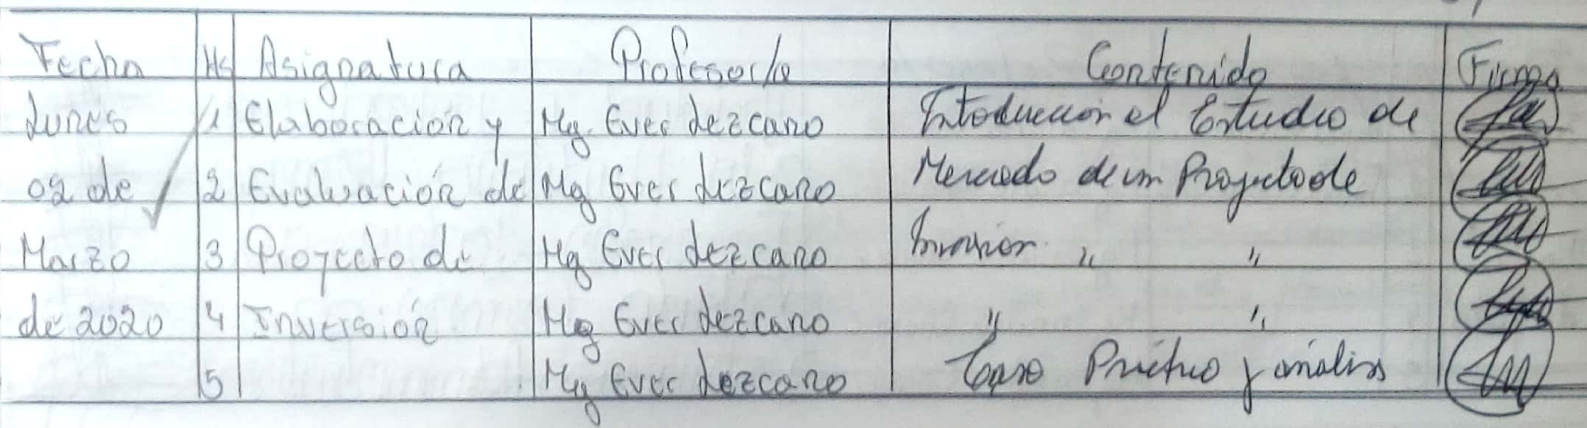 Fecha Hs Asignatura Profesor/a Contenido Firma
Lunes 1 Elaboración y Mg. Ever Lezcano Introducción al Estudio de
02 de 2 Evaluación de Mg Ever Lezcano Mercado de un Proyecto de
Marzo 3 Proyecto de Mg Ever Lezcano Inversión " "
de 2020 4 Inversión Mg Ever Lezcano " "
5 Mg Ever Lezcano Caso Práctico y análisis